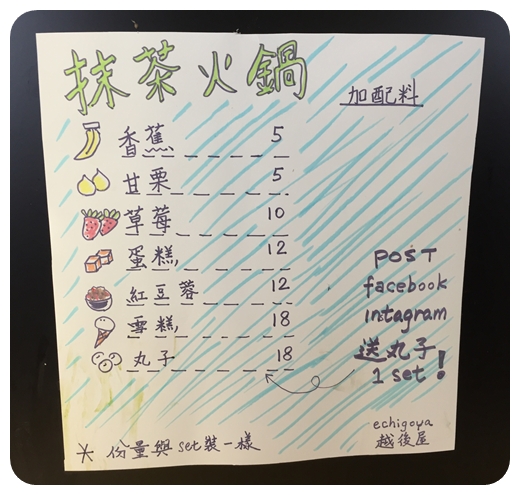 抹茶火鍋
加配料
香蕉 5
甘栗 5
草莓 10
蛋糕 12
紅豆蓉 12
雪糕 18
丸子 18
POST
facebook
intagram
送丸子
1 set!
echigoya
越後屋
* 份量與set裝一樣